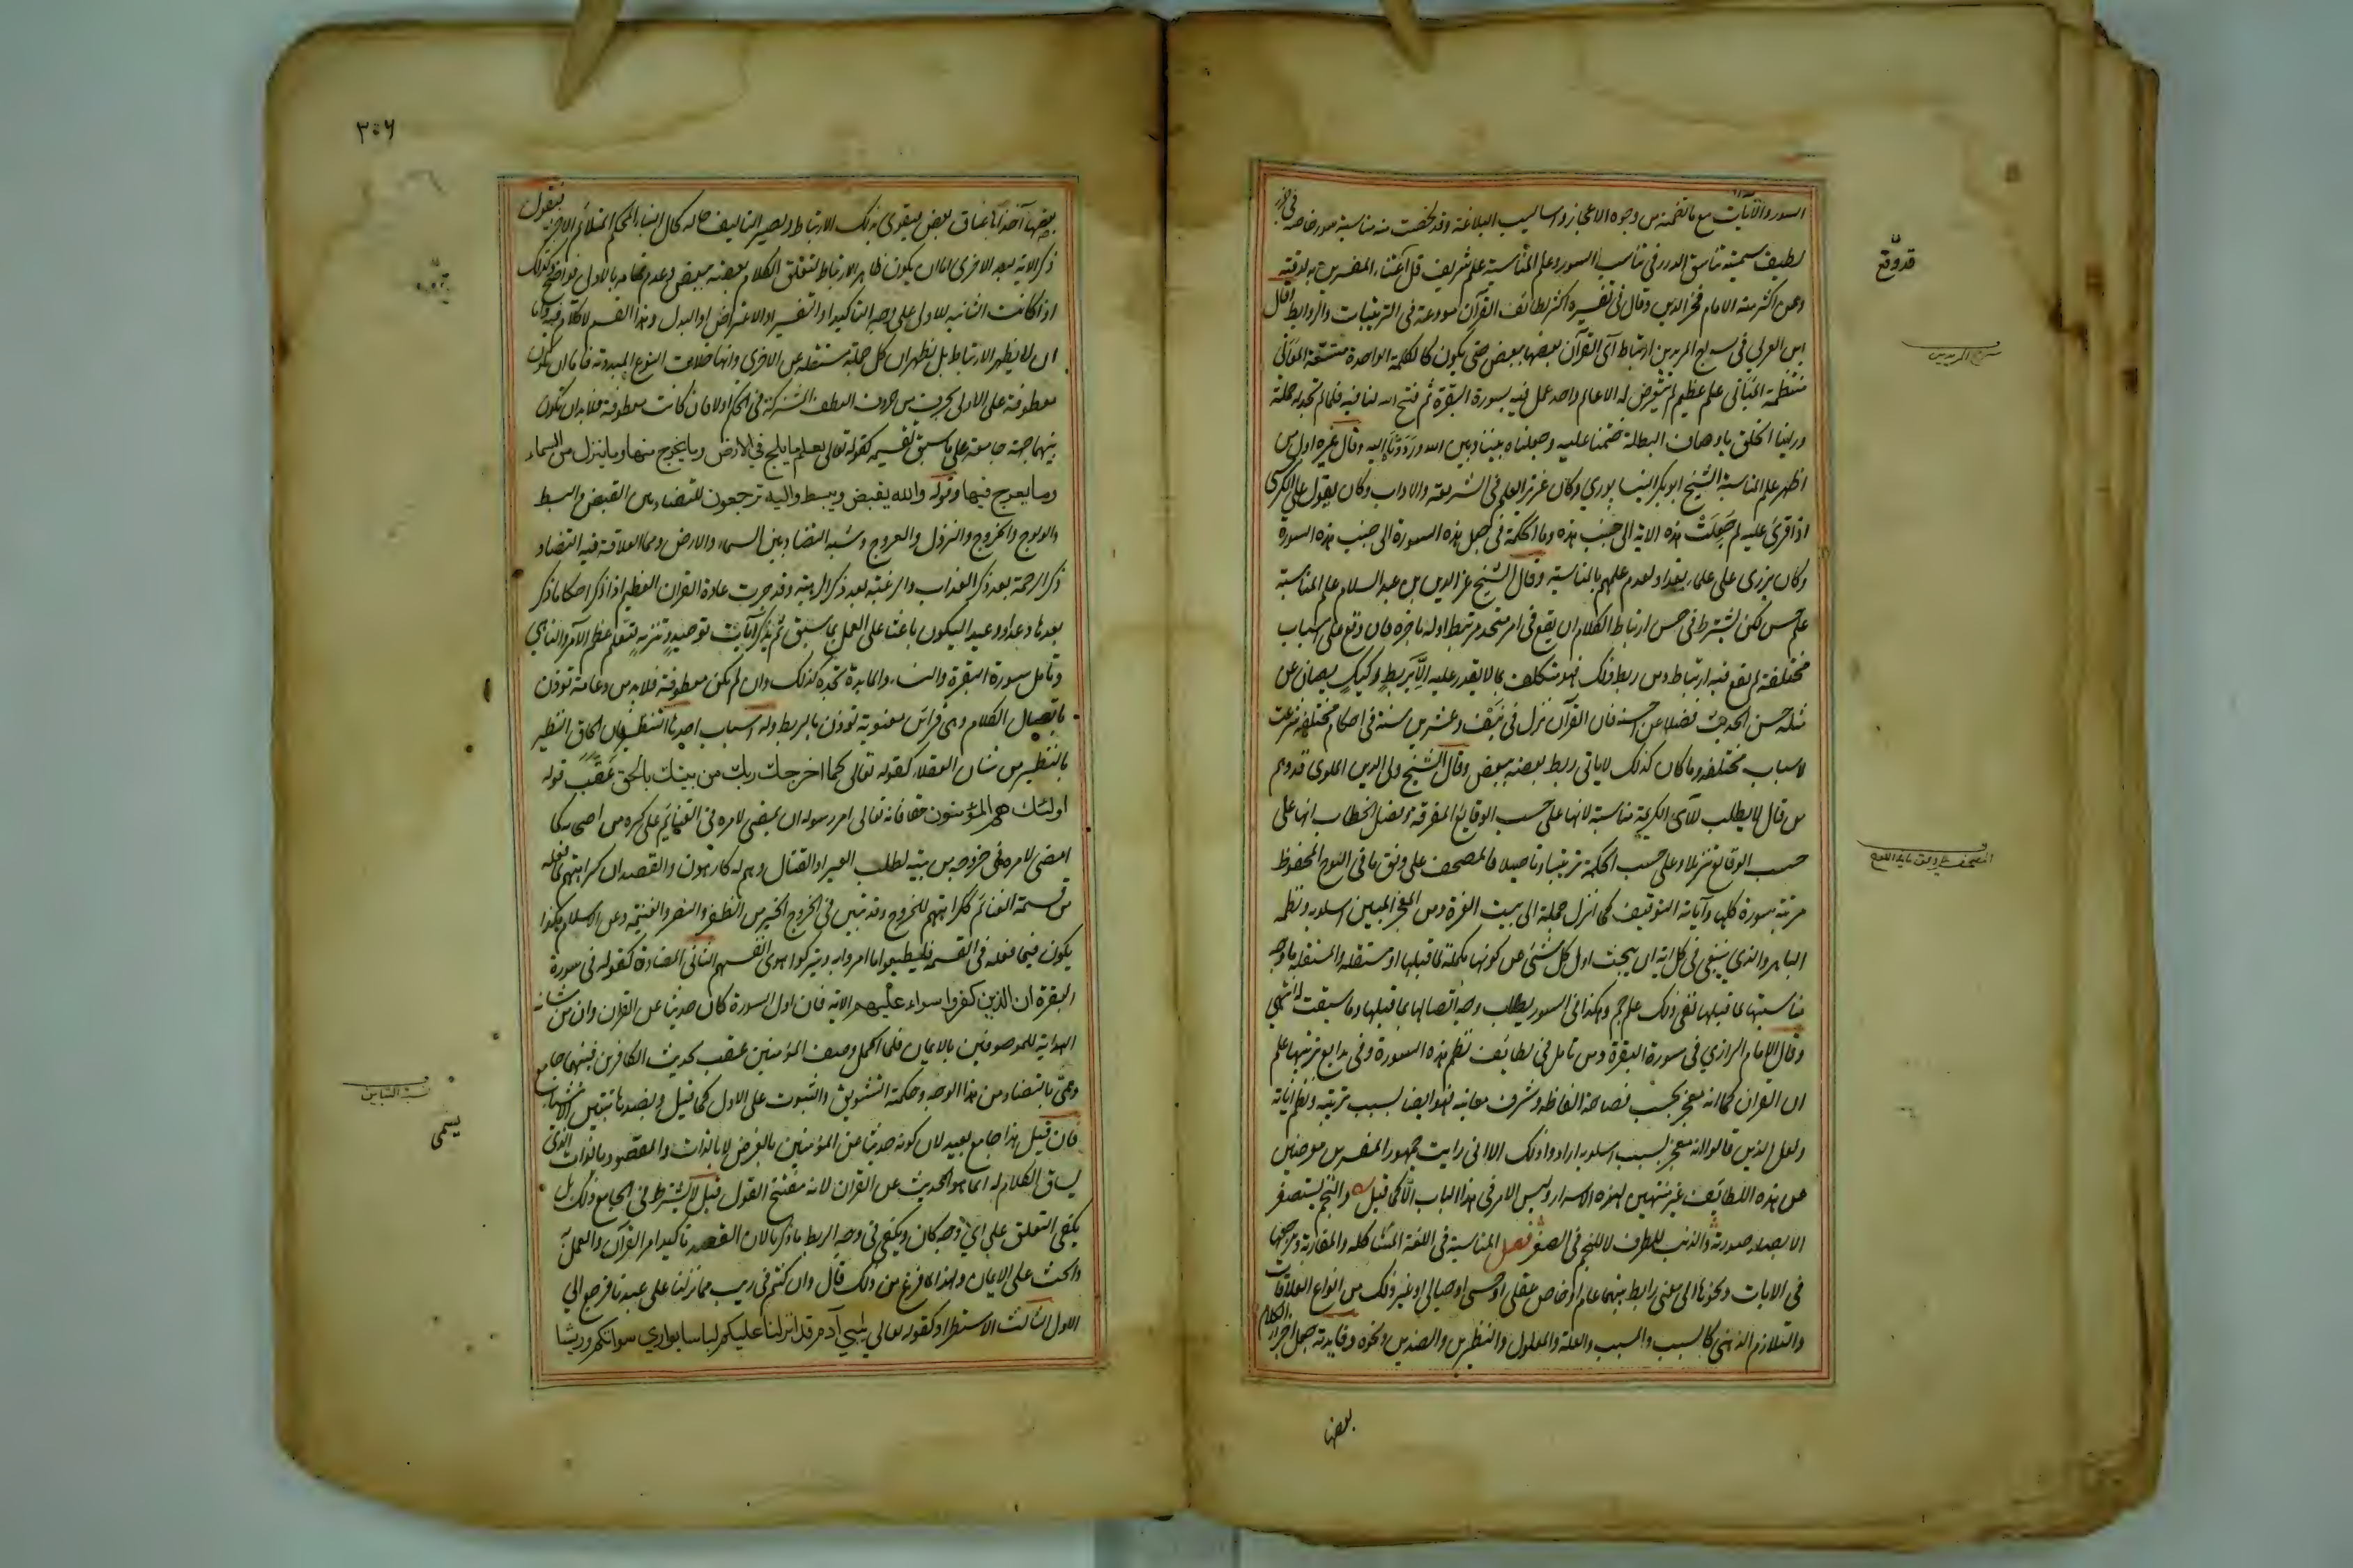 السور والآيات مع ما تضمنه من وجوه الاعجاز واساليب البلاغة وقد لخصت منه مناسبة سور خاصة في جزء
لطيف سميته تناسق الدرر في تناسب السور وعلم المناسبة علم شريف قل اعتناء المفسرين به لدقته
وممن اكثر منه الامام فخر الدين وقال في تفسيره اكثر لطائف القرآن مودعة في الترتيبات والروابط وقال
ابن العربي في سراج المريدين ارتباط آي القرآن بعضها ببعض حتى يكون كالكلمة الواحدة متسقة المعاني
منتظمة المباني علم عظيم لم يتعرض له الا عالم واحد عمل فيه سورة البقرة ثم فتح الله لنا فيه فلما لم نجد له حملة
وراينا الخلق باوصاف البطلة ختمنا عليه وجعلناه بيننا وبين الله ورددناه اليه وقال غيره اول من
اظهر علم المناسبة الشيخ ابو بكر النيسابوري وكان غزير العلم في الشريعة والاداب وكان يقول على الكرسي
اذا قرئ عليه لم جعلت هذه الاية الى جنب هذه وما الحكمة في جعل هذه السورة الى جنب هذه السورة
وكان يزري على علماء بغداد لعدم علمهم بالمناسبة وقال الشيخ عز الدين بن عبد السلام علم المناسبة
علم حسن لكن يشترط في حسن ارتباط الكلام ان يقع في امر متحد مرتبط اوله باخره فان وقع على اسباب
مختلفة لم يقع فيه ارتباط ومن ربط ذلك فهو متكلف بما لا يقدر عليه الا بربط ركيك يصان عن
مثله حسن الحديث فضلا عن احسنه فان القرآن نزل في نيف وعشرين سنة في احكام مختلفة شرعت
لاسباب مختلفة وما كان كذلك لا ياتي ربط بعضه ببعض وقال الشيخ ولي الدين الملوي قد وهم
من قال لا يطلب للآي الكريمة مناسبة لانها على حسب الوقايع المفرقة وفصل الخطاب انها على
حسب الوقايع تنزيلا وعلى حسب الحكمة ترتيبا وتاصيلا فالمصحف على وفق ما في اللوح المحفوظ
مرتبة سوره كلها وآياته بالتوقيف كما انزل جملة الى بيت العزة ومن المعجز المبين اسلوبه ونظمه
الباهر والذي ينبغي في كل اية ان يبحث اول كل شئ عن كونها مكملة لما قبلها او مستقلة والمستقلة ما وجه
مناسبتها لما قبلها ففي ذلك علم جم وهكذا في السور يطلب وجه اتصالها بما قبلها وما سيقت له انتهى
وقال الامام الرازي في سورة البقرة ومن تامل في لطائف نظم هذه السورة وفي بدايع ترتيبها علم
ان القرآن كما انه معجز بحسب فصاحة الفاظه وشرف معانيه فهو ايضا بسبب ترتيبه ونظم آياته
ولعل الذين قالوا انه معجز بسبب اسلوبه ارادوا ذلك الا اني رايت جمهور المفسرين معرضين
عن هذه اللطائف غير منتبهين لهذه الاسرار وليس الامر في هذا الباب الا كما قيل والنجم يستصغر
الابصار صورته والذنب للطرف لا للنجم في الصغر فصل المناسبة في اللغة المشاكلة والمقاربة ومرجعها
في الايات ونحوها الى معنى رابط بينهما عام او خاص عقلي او حسي او خيالي او غير ذلك من انواع العلاقات
والتلازم الذهني كالسبب والمسبب والعلة والمعلول والنظيرين والضدين ونحوه وفايدته جعل اجزاء الكلام
بعضها
قد وقع
سراج المريدين
المصحف على وفق ما في اللوح
٣٠٦
بعضها آخذا باعناق بعض فيقوى بذلك الارتباط ويصير التاليف حاله حال البناء المحكم المتلائم الاجزاء فنقول
ذكر الاية بعد الاخرى اما ان يكون ظاهر الارتباط لتعلق الكلام بعضه ببعض وعدم تمامه بالاولى فواضح وكذلك
اذا كانت الثانية للاولى على وجه التاكيد او التفسير او الاعتراض او البدل وهذا القسم لا كلام فيه واما
ان لا يظهر الارتباط بل يظهر ان كل جملة مستقلة عن الاخرى وانها خلاف النوع المبدوء به فاما ان تكون
معطوفة على الاولى بحرف من حروف العطف المشتركة في الحكم او لا فان كانت معطوفة فلا بد ان تكون
بينهما جهة جامعة على ما سبق تقسيمه كقوله تعالى يعلم ما يلج في الارض وما يخرج منها وما ينزل من السماء
وما يعرج فيها وقوله والله يقبض ويبسط واليه ترجعون للتضاد بين القبض والبسط
والولوج والخروج والنزول والعروج وشبه التضاد بين السماء والارض ومما العلاقة فيه التضاد
ذكر الرحمة بعد ذكر العذاب والرغبة بعد ذكر الرهبة وقد جرت عادة القران العظيم اذا ذكر احكاما ذكر
بعدها وعدا ووعيدا ليكون باعثا على العمل بما سبق ثم يذكر آيات توحيد وتنزيه ليعلم عظم الآمر والناهي
وتامل سورة البقرة والنساء والمايدة تجده كذلك وان لم تكن معطوفة فلا بد من دعامة تؤذن
باتصال الكلام وهي قرائن معنوية تؤذن بالربط وله اسباب احدها التنظير فان الحاق النظير
بالنظير من شان العقلاء كقوله تعالى كما اخرجك ربك من بيتك بالحق عقب قوله
اولئك هم المؤمنون حقا فانه تعالى امر رسوله ان يمضي لامره في الغنايم على كره من اصحابه كما
امضى لامره في خروجه من بيته لطلب العير او القتال وهم له كارهون والقصد ان كراهتهم لما فعله
من قسمة الغنائم ككراهتهم للخروج وقد تبين في الخروج الخير من الظفر والنصر والغنيمة وعز الاسلام فكذا
يكون فيما فعله في القسمة فليطيعوا ما امروا به ويتركوا هوى انفسهم الثاني المضادة كقوله في سورة
البقرة ان الذين كفروا سواء عليهم الاية فان اول السورة كان حديثا عن القران وان من شانه
الهداية للموصوفين بالايمان فلما اكمل وصف المؤمنين عقب بحديث الكافرين فبينهما جامع
وهمي بالتضاد من هذا الوجه وحكمته التشويق والثبوت على الاول كما قيل وبضدها تتبين الاشياء
فان قيل هذا جامع بعيد لان كونه حديثا عن المؤمنين بالعرض لا بالذات والمقصود بالذات الذي
يساق الكلام له انما هو الحديث عن القران لانه مفتتح القول قيل لا يشترط في الجامع ذلك بل
يكفي التعلق على اي وجه كان ويكفي في وجه الربط ما ذكرنا لان القصد تاكيد امر القرآن والعمل به
والحث على الايمان ولهذا لما فرغ من ذلك قال وان كنتم في ريب مما نزلنا على عبدنا فرجع الى
الاول الثالث الاستطراد كقوله تعالى يبني آدم قد انزلنا عليكم لباسا يواري سوآتكم وريشا
يسمى